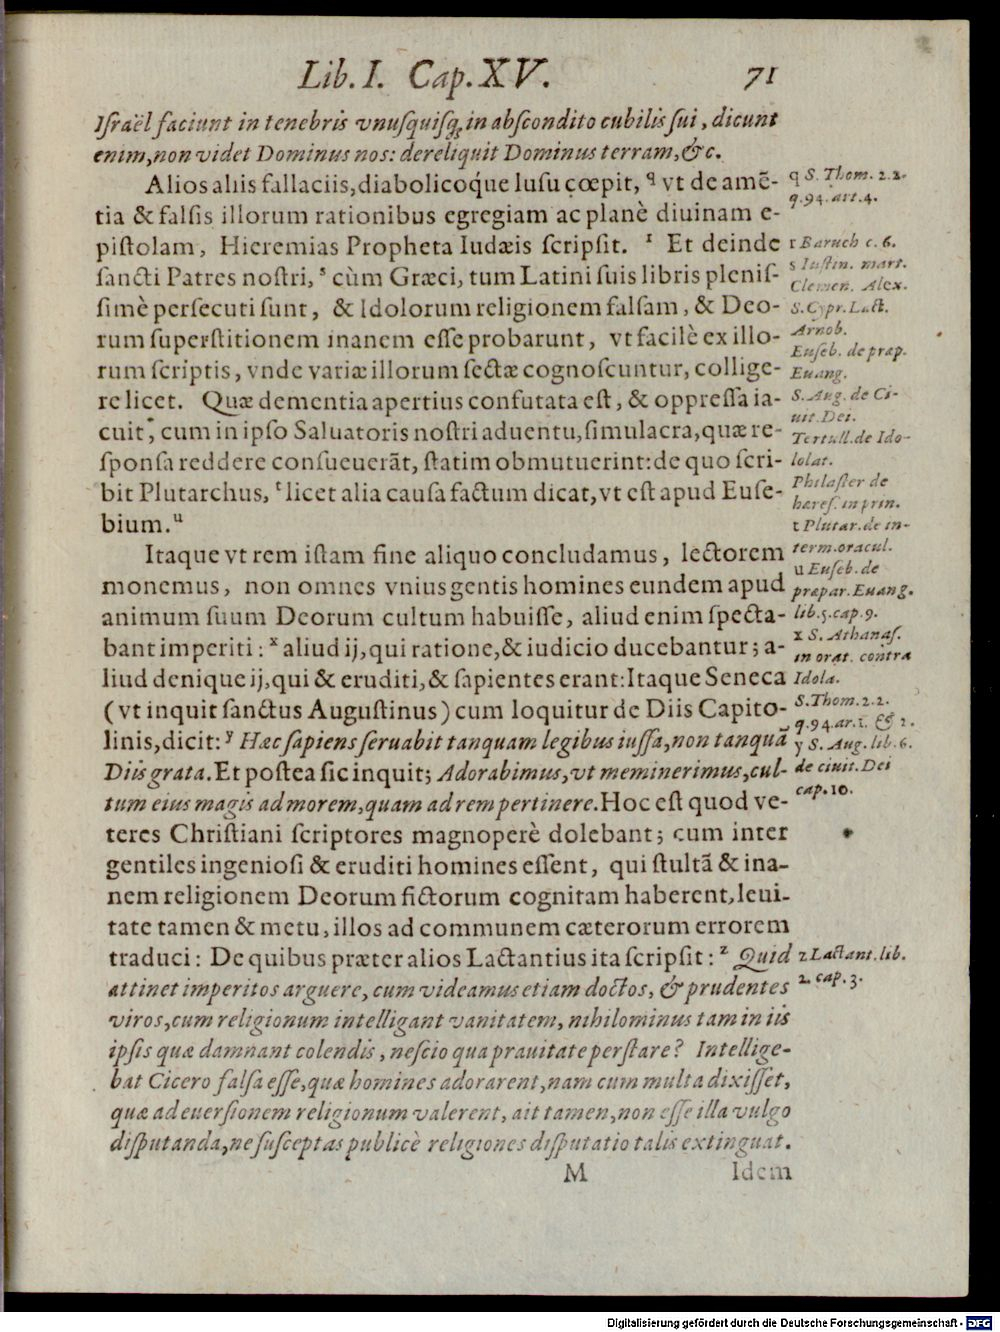 Lib. I. Cap. XV. 71
Iſraël faciunt in tenebris vnuſquiſq; in abſcondito cubilis ſui, dicunt
enim, non videt Dominus nos: dereliquit Dominus terram, &c.
Alios aliis fallaciis, diabolicoq́ue luſu cœpit, q vt de amē-
tia & falſis illorum rationibus egregiam ac planè diuinam e-
piſtolam, Hieremias Propheta Iudæis ſcripſit. r Et deinde
ſancti Patres noſtri, s cùm Græci, tum Latini ſuis libris pleniſ-
ſimè perſecuti ſunt, & Idolorum religionem falſam, & Deo-
rum ſuperſtitionem inanem eſſe probarunt, vt facilè ex illo-
rum ſcriptis, vnde variæ illorum ſectæ cognoſcuntur, collige-
re licet. Quæ dementia apertius confutata eſt, & oppreſſa ia-
cuit, cum in ipſo Saluatoris noſtri aduentu, ſimulacra, quæ re-
ſponſa reddere conſueuerāt, ſtatim obmutuerint: de quo ſcri-
bit Plutarchus, t licet alia cauſa factum dicat, vt eſt apud Euſe-
bium. u
Itaque vt rem iſtam fine aliquo concludamus, lectorem
monemus, non omnes vnius gentis homines eundem apud
animum ſuum Deorum cultum habuiſſe, aliud enim ſpecta-
bant imperiti: x aliud ij, qui ratione, & iudicio ducebantur; a-
liud denique ij, qui & eruditi, & ſapientes erant: Itaque Seneca
(vt inquit ſanctus Auguſtinus) cum loquitur de Diis Capito-
linis, dicit: y Hæc ſapiens ſeruabit tanquam legibus iuſſa, non tanquā
Diis grata. Et poſtea ſic inquit; Adorabimus, vt meminerimus, cul-
tum eius magis ad morem, quam ad rem pertinere. Hoc eſt quod ve-
teres Chriſtiani ſcriptores magnoperè dolebant; cum inter
gentiles ingenioſi & eruditi homines eſſent, qui ſtultā & ina-
nem religionem Deorum fictorum cognitam haberent, leui-
tate tamen & metu, illos ad communem cæterorum errorem
traduci: De quibus præter alios Lactantius ita ſcripſit: z Quid
attinet imperitos arguere, cum videamus etiam doctos, & prudentes
viros, cum religionum intelligant vanitatem, nihilominus tam in iis
ipſis quæ damnant colendis, neſcio qua prauitate perſtare? Intellige-
bat Cicero falſa eſſe, quæ homines adorarent, nam cum multa dixiſſet,
quæ ad euerſionem religionum valerent, ait tamen, non eſſe illa vulgo
diſputanda, ne ſuſceptas publicè religiones diſputatio talis extinguat.
M Idem
q S. Thom. 2.2.
q. 94. art. 4.
r Baruch c. 6.
s Iuſtin. mart.
Clemen. Alex.
S. Cypr. Lact.
Arnob.
Euſeb. de præp.
Euang.
S. Aug. de Ci-
uit. Dei.
Tertull. de Ido-
lolat.
Philaſter de
hæreſ. in prin.
t Plutar. de in-
term. oracul.
u Euſeb. de
præpar. Euang.
lib. 5. cap. 9.
x S. Athanaſ.
in orat. contra
Idola.
S. Thom. 2.2.
q. 94. ar. 1. & 2.
y S. Aug. lib. 6.
de ciuit. Dei
cap. 10.
z Lactant. lib.
2. cap. 3.
Digitalisierung gefördert durch die Deutsche Forschungsgemeinschaft - DFG